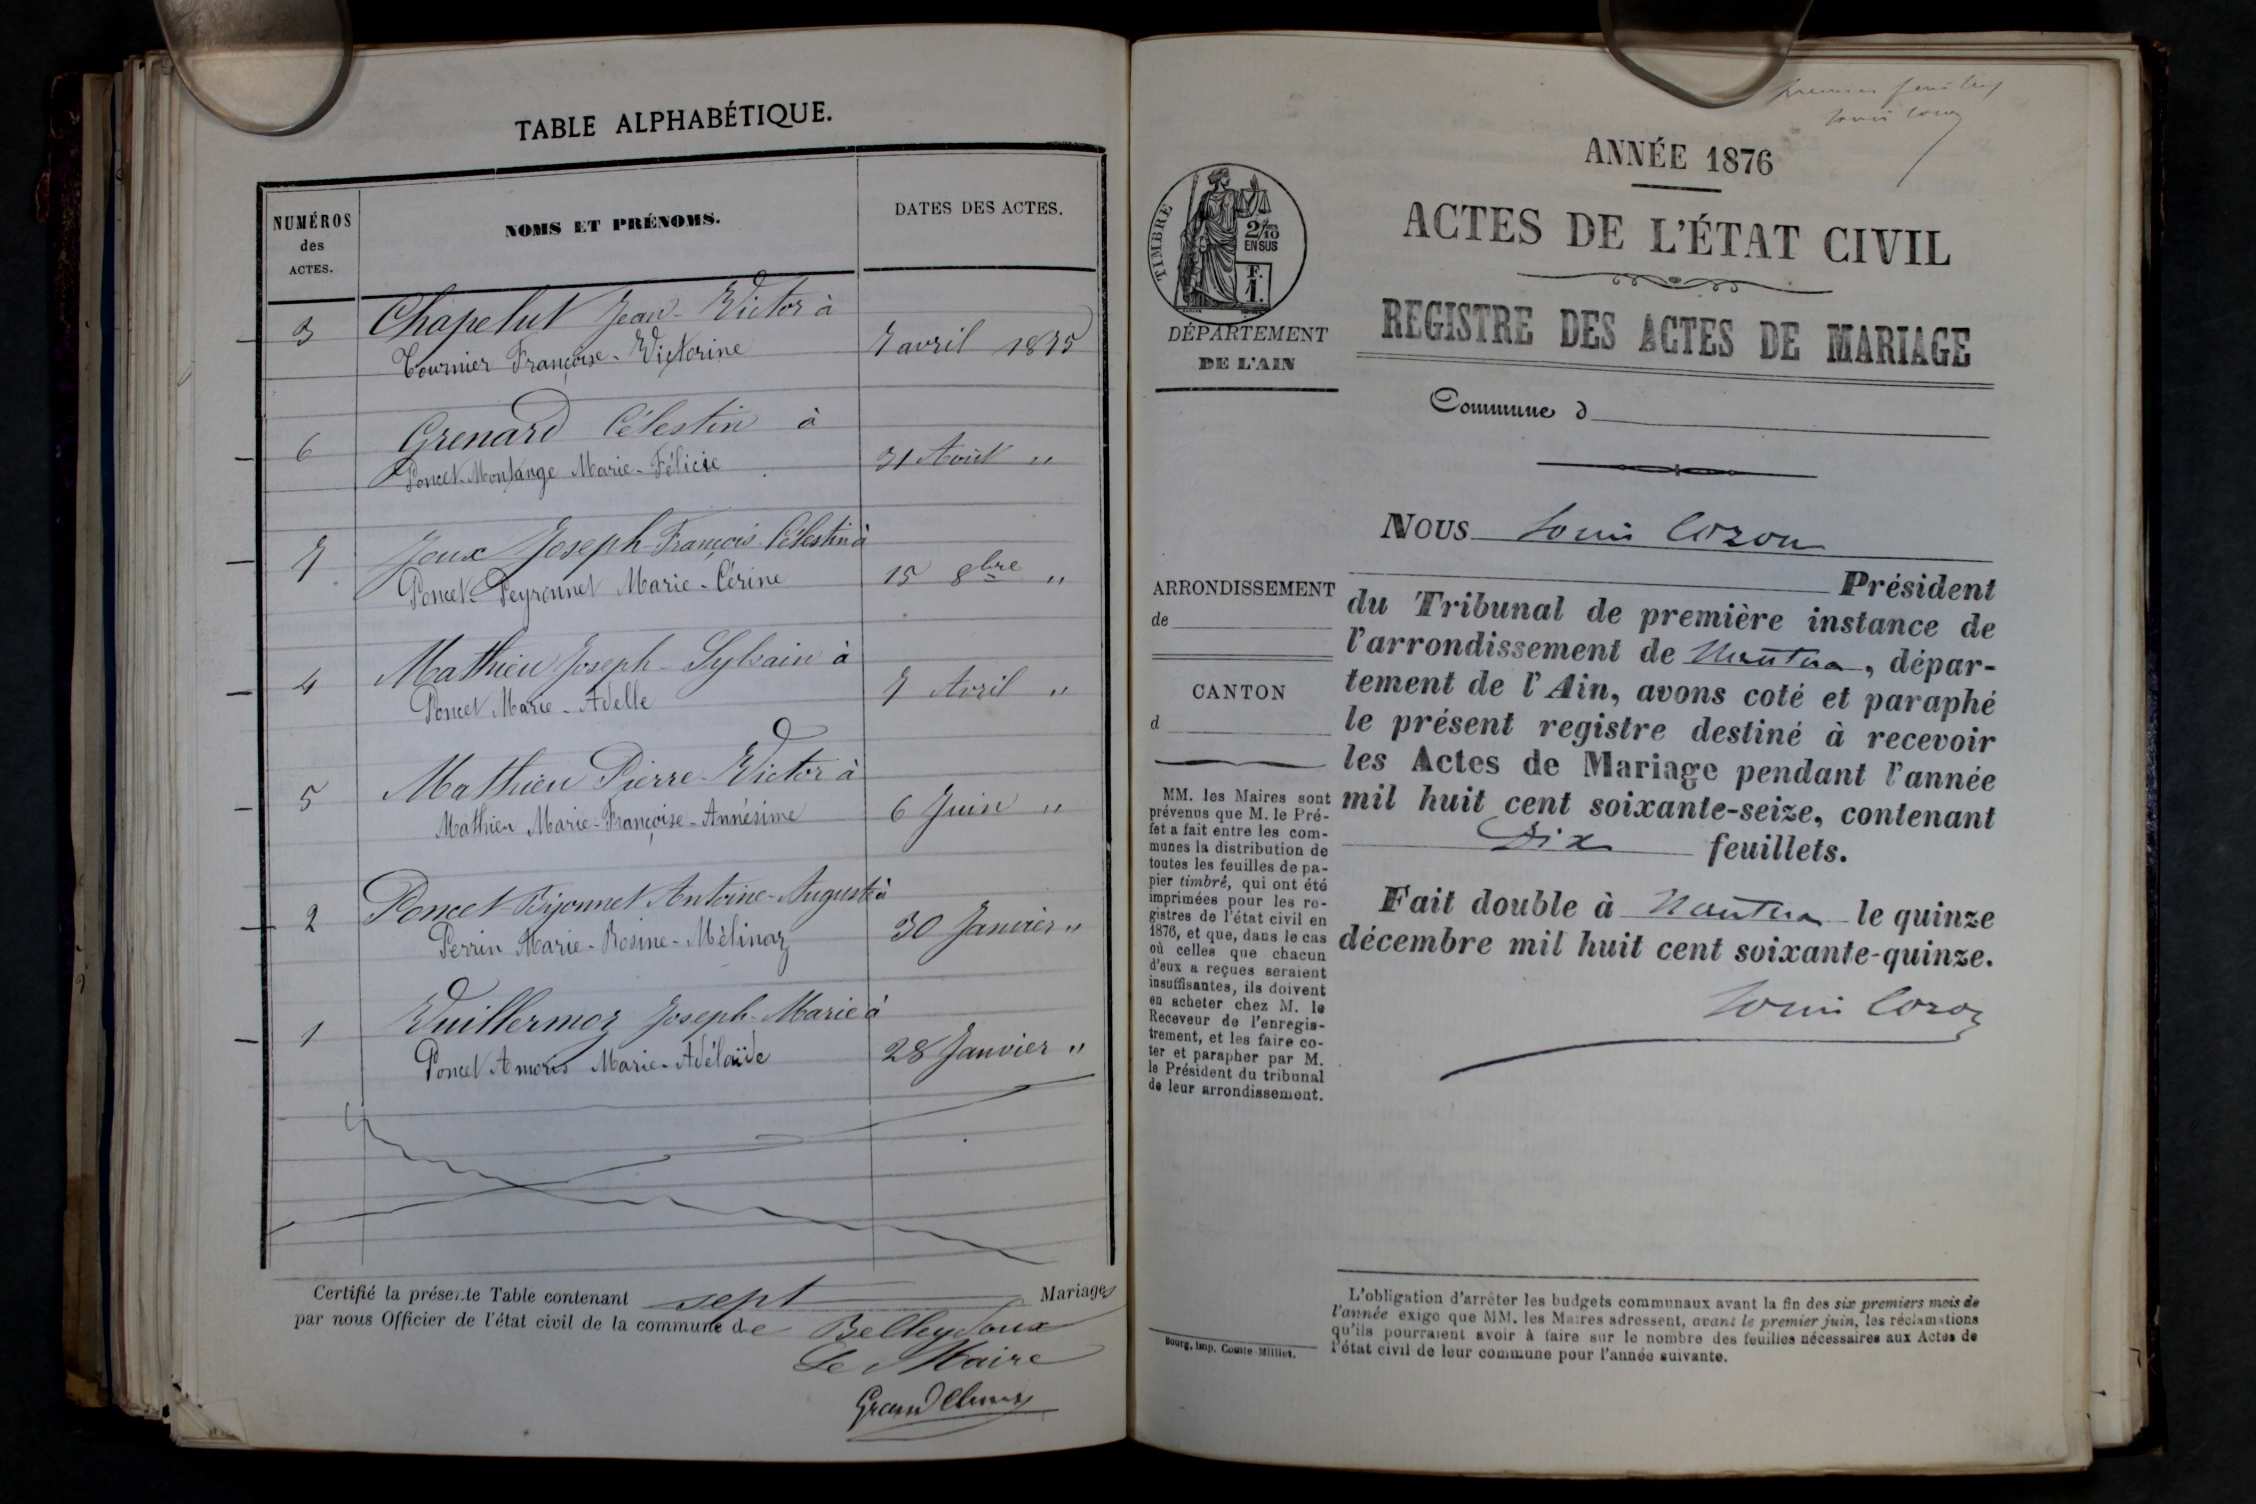 TABLE ALPHABÉTIQUE.
NUMÉROS
des
ACTES.
NOMS ET PRÉNOMS.
DATES DES ACTES.
3 Chapelut Jean-Victor à
Tournier Françoise-Victorine 7 avril 1875
6 Grenard Célestin à
Poncet-Montange Marie-Félicie 31 Août "
7 Joux Joseph François Célestin à
Poncet-Peyronnet Marie-Cérine 15 8bre "
4 Mathieu Joseph-Sylvain à
Poncet Marie-Adelle 7 Avril "
5 Mathieu Pierre-Victor à
Mathieu Marie-Françoise-Annésime 6 Juin "
2 Poncet Bijonnet Antoine-Auguste à
Perrin Marie-Rosine-Mélinaz 30 Janvier "
1 Vuillermoz Joseph-Marie à
Poncet Amoris Marie-Adélaïde 28 Janvier "
Certifié la présente Table contenant sept Mariages
par nous Officier de l'état civil de la commune de Belleydoux
Le Maire
premier feuillet
Louis Cozon
ANNÉE 1876
ACTES DE L'ÉTAT CIVIL
REGISTRE DES ACTES DE MARIAGE
TIMBRE
2/10
EN SUS
F.
1.
DÉPARTEMENT
DE L'AIN
Commune d
Nous Louis Cozon
Président
du Tribunal de première instance de
l'arrondissement de Nantua, dépar-
tement de l'Ain, avons coté et paraphé
le présent registre destiné à recevoir
les Actes de Mariage pendant l'année
mil huit cent soixante-seize, contenant
Dix feuillets.
Fait double à Nantua le quinze
décembre mil huit cent soixante-quinze.
Louis Cozon
ARRONDISSEMENT
de
CANTON
d
MM. les Maires sont
prévenus que M. le Pré-
fet a fait entre les com-
munes la distribution de
toutes les feuilles de pa-
pier timbré, qui ont été
imprimées pour les re-
gistres de l'état civil en
1876, et que, dans le cas
où celles que chacun
d'eux a reçues seraient
insuffisantes, ils doivent
en acheter chez M. le
Receveur de l'enregis-
trement, et les faire co-
ter et parapher par M.
le Président du tribunal
de leur arrondissement.
Bourg, imp. Comte-Milliet.
L'obligation d'arrêter les budgets communaux avant la fin des six premiers mois de
l'année exige que MM. les Maires adressent, avant le premier juin, les réclamations
qu'ils pourraient avoir à faire sur le nombre des feuilles nécessaires aux Actes de
l'état civil de leur commune pour l'année suivante.